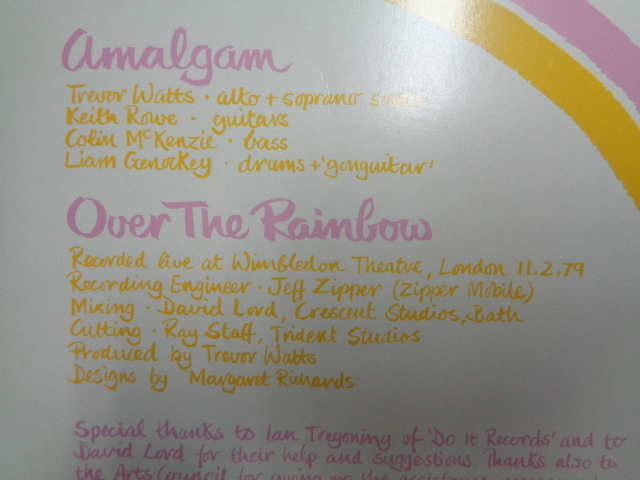 Amalgam
Trevor Watts · alto + soprano
Keith Rowe · guitars
Colin McKenzie · bass
Liam Genockey · drums + 'gonguitar'
Over The Rainbow
Recorded live at Wimbledon Theatre, London 11.2.79
Recording Engineer · Jeff Zipper (Zipper Mobile)
Mixing · David Lord, Crescent Studios, Bath
Cutting · Ray Staff, Trident Studios
Produced by Trevor Watts
Designs by Margaret Richards
Special thanks to Ian Tregoning of 'Do It Records' and to
David Lord for their help and suggestions. Thanks also to
the Arts Council for giving me the assistance